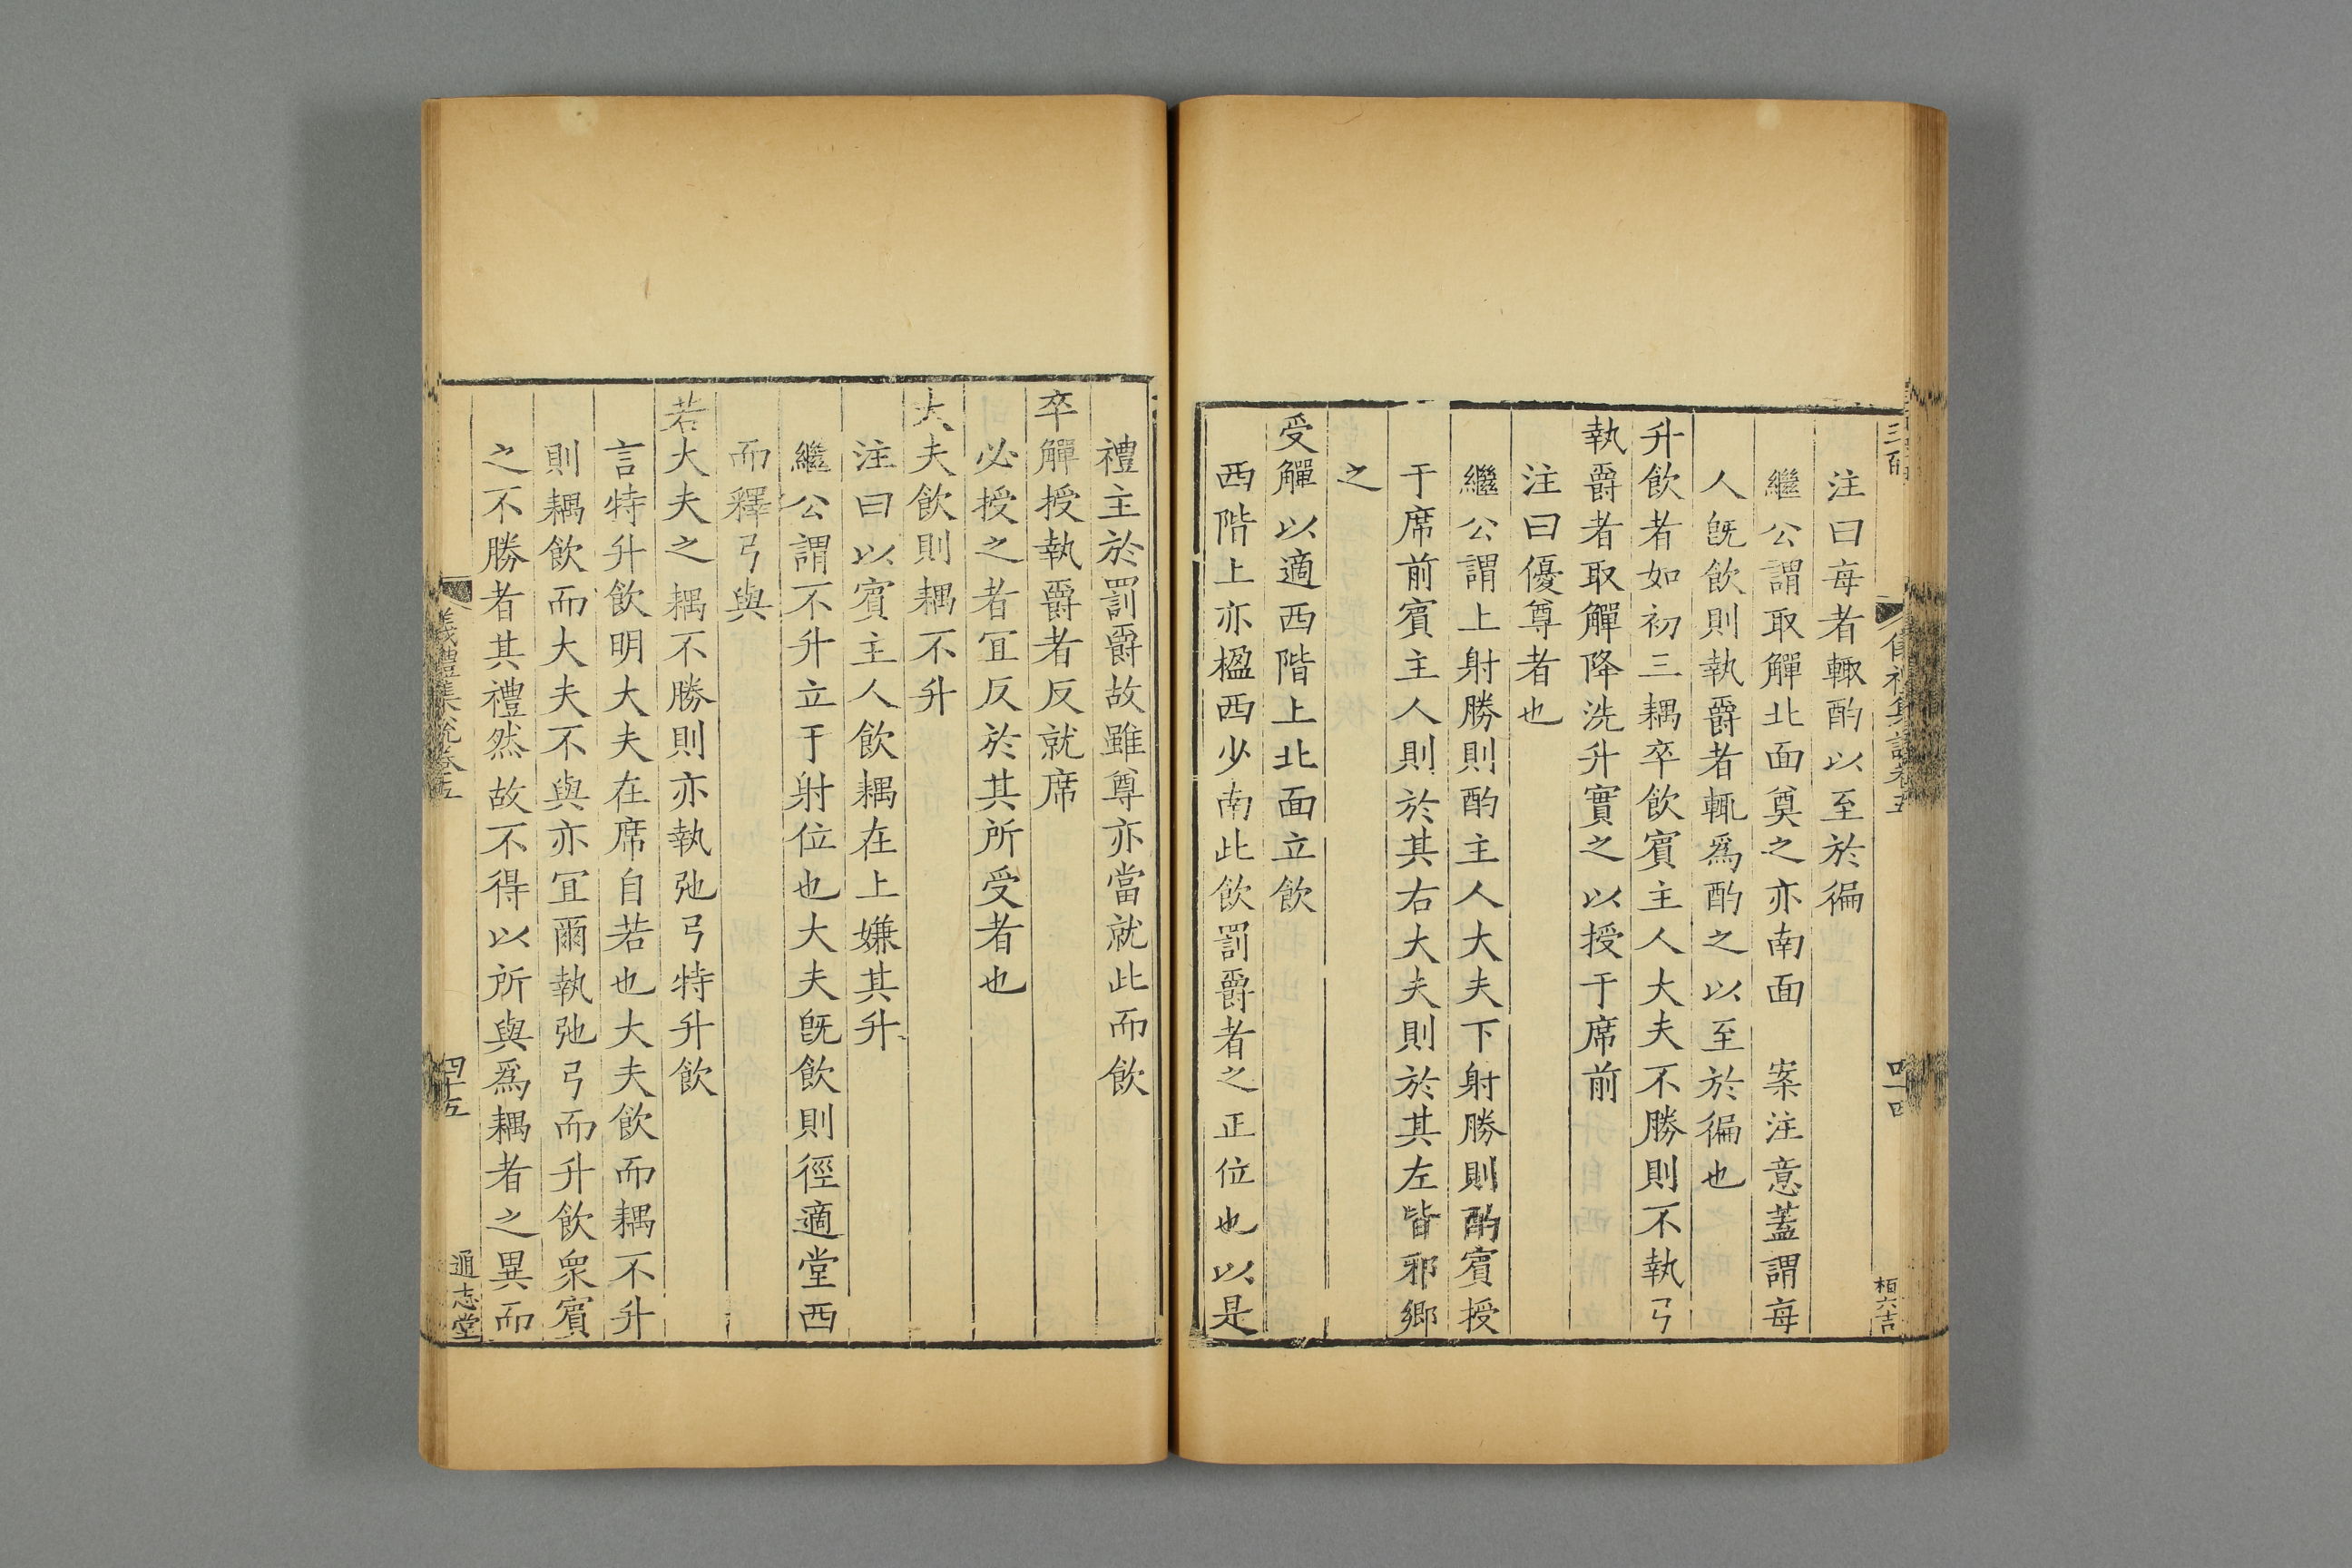 注曰每者輙酌以至於徧
繼公謂取觶北面奠之亦南面　案注意蓋謂每
人旣飲則執爵者輒爲酌之以至於徧也
升飲者如初三耦卒飲賓主人大夫不勝則不執弓
執爵者取觶降洗升實之以授于席前
注曰優尊者也
繼公謂上射勝則酌主人大夫下射勝則酌賓授
于席前賓主人則於其右大夫則於其左皆邪鄉
之
受觶以適西階上北面立飲
西階上亦楹西少南此飲罰爵者之正位也以是
柏六吉
禮主於罰爵故雖尊亦當就此而飲
卒觶授執爵者反就席
必授之者宜反於其所受者也
大夫飲則耦不升
注曰以賓主人飲耦在上嫌其升
繼公謂不升立于射位也大夫旣飲則徑適堂西
而釋弓與
若大夫之耦不勝則亦執弛弓特升飲
言特升飲明大夫在席自若也大夫飲而耦不升
則耦飲而大夫不與亦宜爾執弛弓而升飲衆賓
之不勝者其禮然故不得以所與爲耦者之異而
儀禮集說卷五
四十五
通志堂